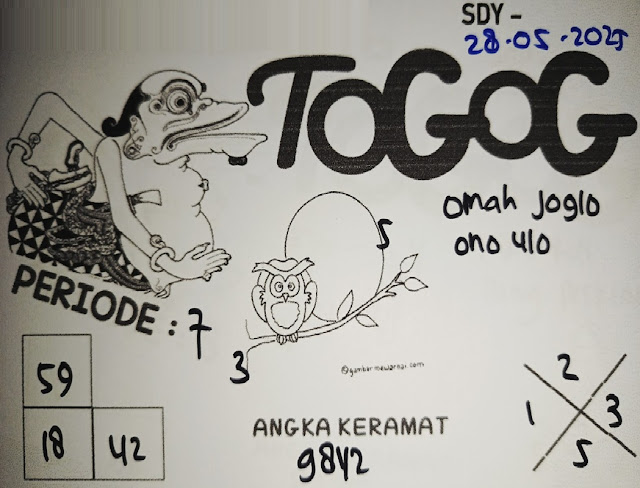 SDY -
28.05.2025
TOGOG
omah joglo
ono ulo
5
PERIODE : 7
3
@gambarmewarnai.com
59
18 42
ANGKA KERAMAT
9842
2
1 3
5